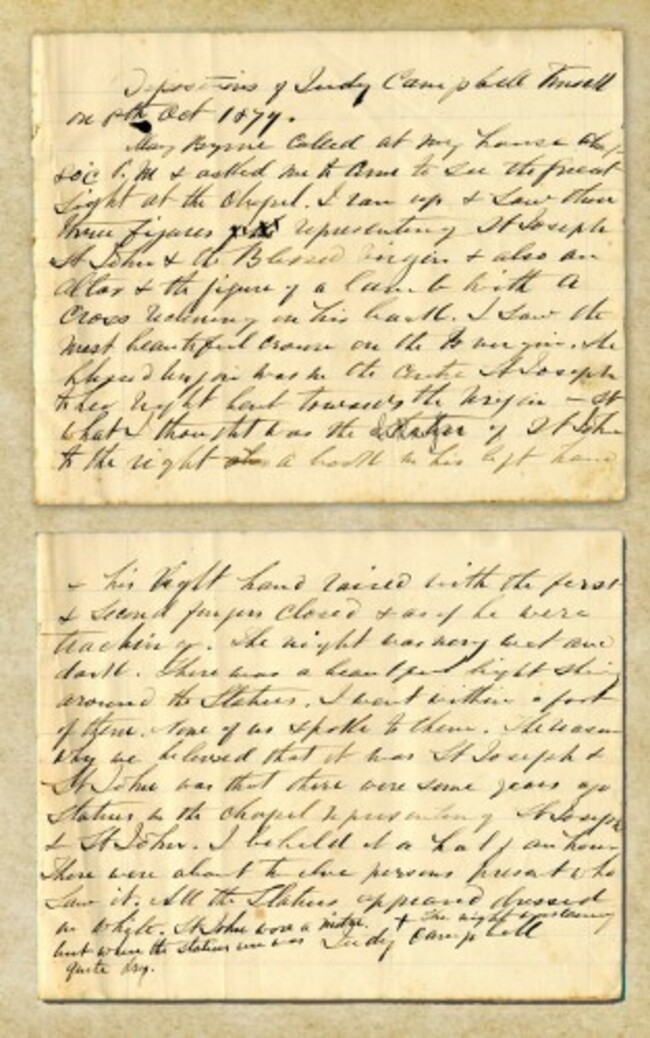 Depositions of Judy Campbell
on 8th Oct 1879.
Mary Byrne called at my house
P.M & asked me to come to see the great
sight at the chapel. I ran up & saw then
three figures representing St Joseph
St John & the Blessed Virgin & also an
altar & the figure of a lamb with a
cross reclining on his back. I saw the
most beautiful crown on the B virgin. The
blessed virgin was in the centre St Joseph
to her right bent towards the Virgin - &
what I thought was the of St John
to the right a book in his left hand
- his right hand raised with the first
& second fingers closed & as if he were
teaching. The night was very wet and
dark. There was a beautiful light
around the Statues. I went within a foot
of them. None of us spoke to them. The reason
why we believed that it was St Joseph &
St John was that there were some years ago
Statues in the chapel representing St Joseph
& St John. I beheld it a half an hour
There were about twelve persons present who
saw it. All the Statues appeared dressed
in white. St John wore a mitre. + The night was
but where the statues were was Judy Campbell
quite dry.